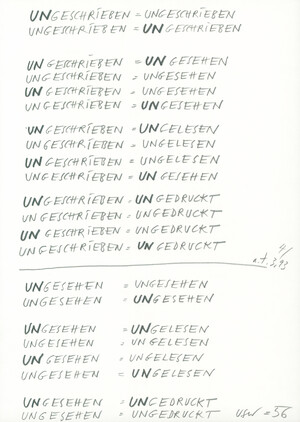 UNGESCHRIEBEN = UNGESCHRIEBEN
UNGESCHRIEBEN = UNGESCHRIEBEN
UNGESCHRIEBEN = UNGESEHEN
UNGESCHRIEBEN = UNGESEHEN
UNGESCHRIEBEN = UNGESEHEN
UNGESCHRIEBEN = UNGESEHEN
UNGESCHRIEBEN = UNGELESEN
UNGESCHRIEBEN = UNGELESEN
UNGESCHRIEBEN = UNGELESEN
UNGESCHRIEBEN = UNGESEHEN
UNGESCHRIEBEN = UNGEDRUCKT
UNGESCHRIEBEN = UNGEDRUCKT
UNGESCHRIEBEN = UNGEDRUCKT
UNGESCHRIEBEN = UNGEDRUCKT
UNGESEHEN = UNGESEHEN
UNGESEHEN = UNGESEHEN
UNGESEHEN = UNGELESEN
UNGESEHEN = UNGELESEN
UNGESEHEN = UNGELESEN
UNGESEHEN = UNGELESEN
UNGESEHEN = UNGEDRUCKT
UNGESEHEN = UNGEDRUCKT usw = 56